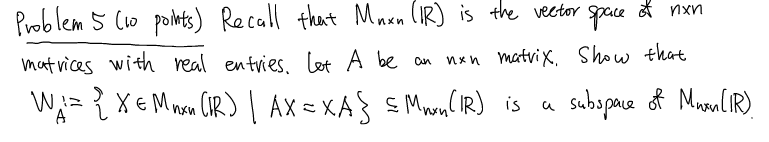 Problem 5 (10 points) Recall that Mₙₓₙ(ℝ) is the vector space of nxn
matrices with real entries. Let A be an nxn matrix. Show that
W_A := { X ∈ Mₙₓₙ(ℝ) | AX = XA } ⊆ Mₙₓₙ(ℝ) is a subspace of Mₙₓₙ(ℝ).